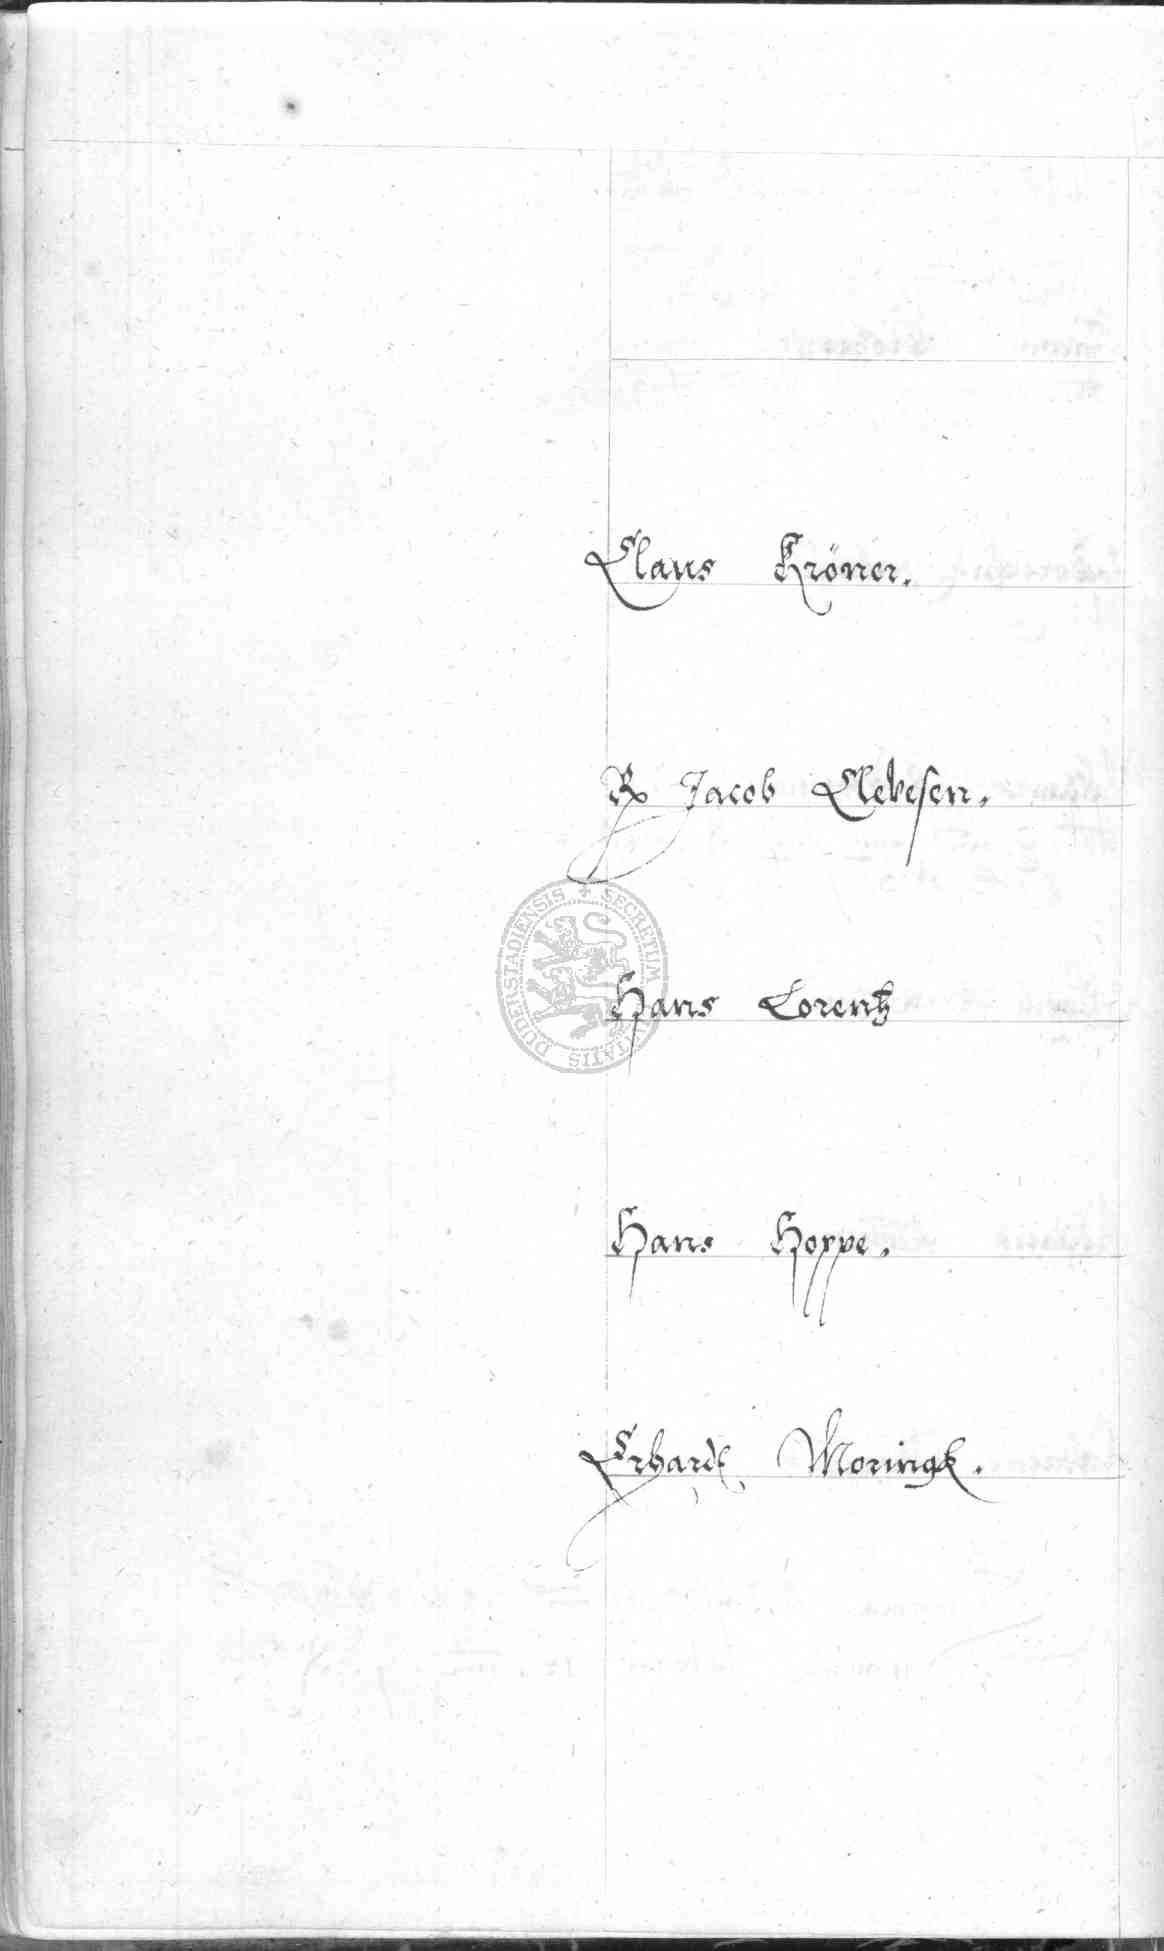 Claus Kröner.
Jacob Clevesen.
Hans Lorentz
SECRETUM CIVITATIS DUDERSTADIENSIS
Hans Hoppe.
Erhardt Moringk.